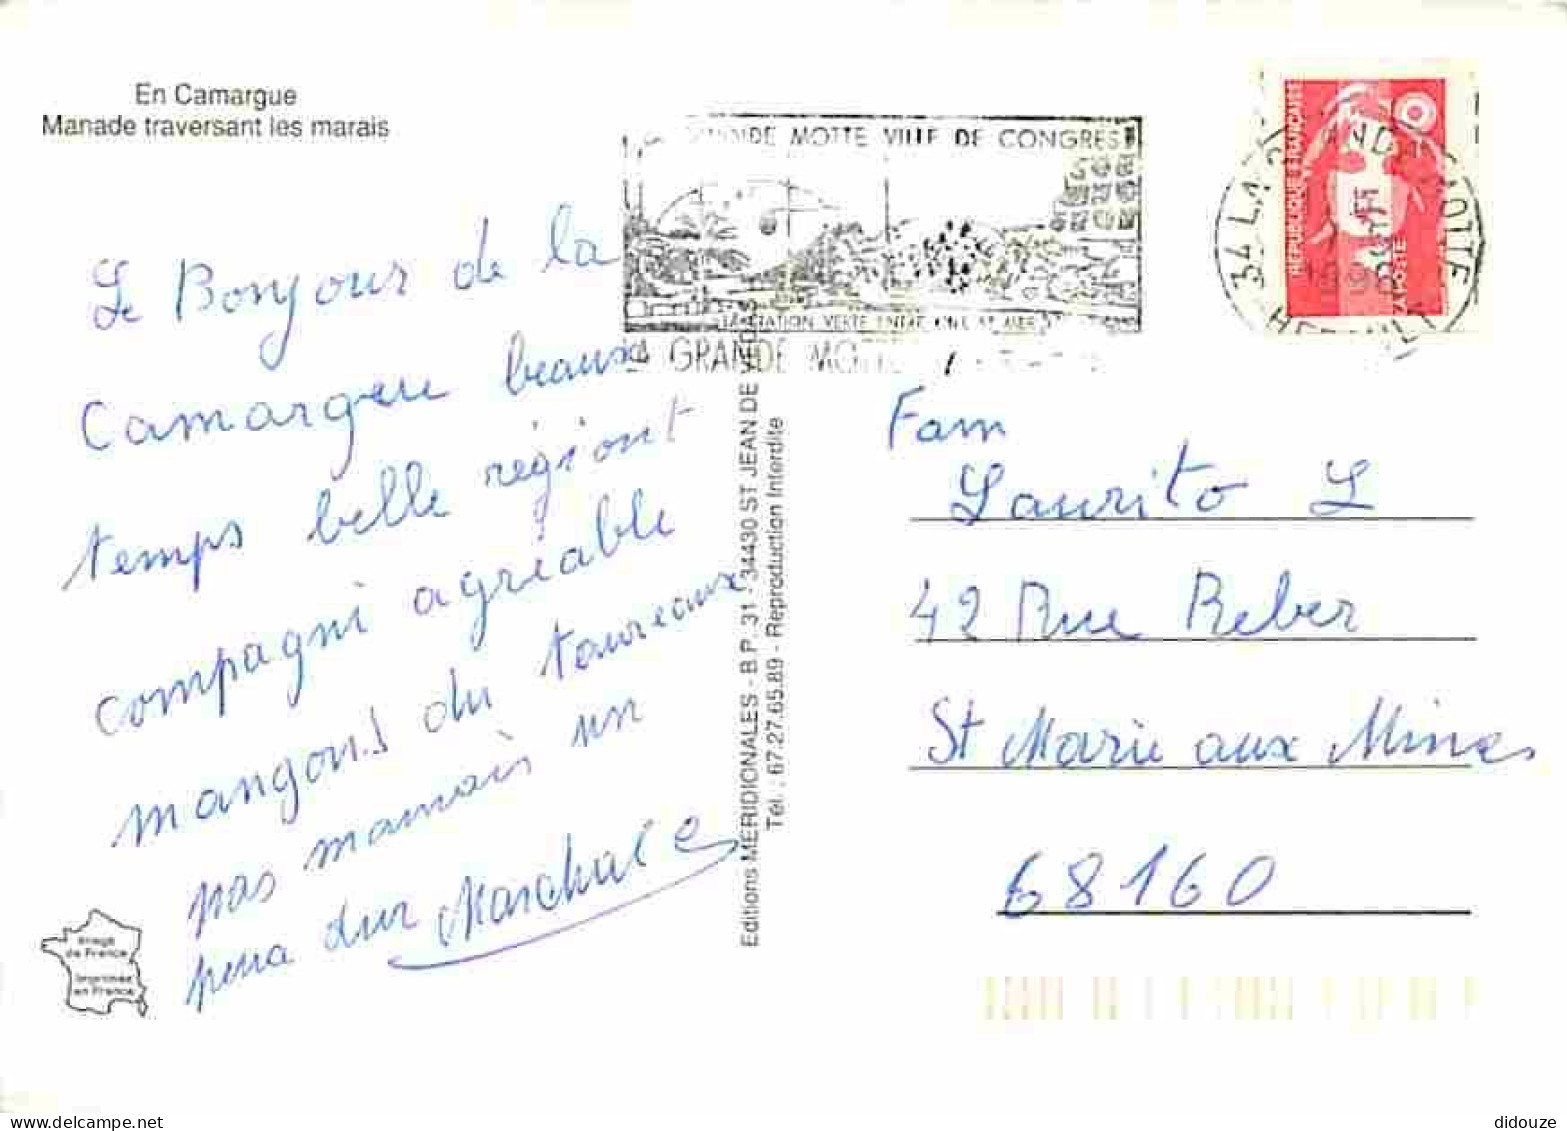 En Camargue
Manade traversant les marais
MOTTE VILLE DE CONGRES
VERTE ENTRE
LA GRANDE MOTTE
REPUBLIQUE FRANÇAISE
LA POSTE
34 LA
HERAULT
Le Bonjour de la
Camargue beaux
temps belle régiont
compagni agréable
mangons du taureaux
pas mamais un
peua dur Marchal
Editions MERIDIONALES - B.P. 31 - 34430 ST JEAN DE VEDAS
Tél. : 67.27.65.89 - Reproduction Interdite
Fam
Laurito L
42 Rue Reber
St Marie aux Mines
68160
Image
de France
Imprimée
en France
delcampe.net
didouze